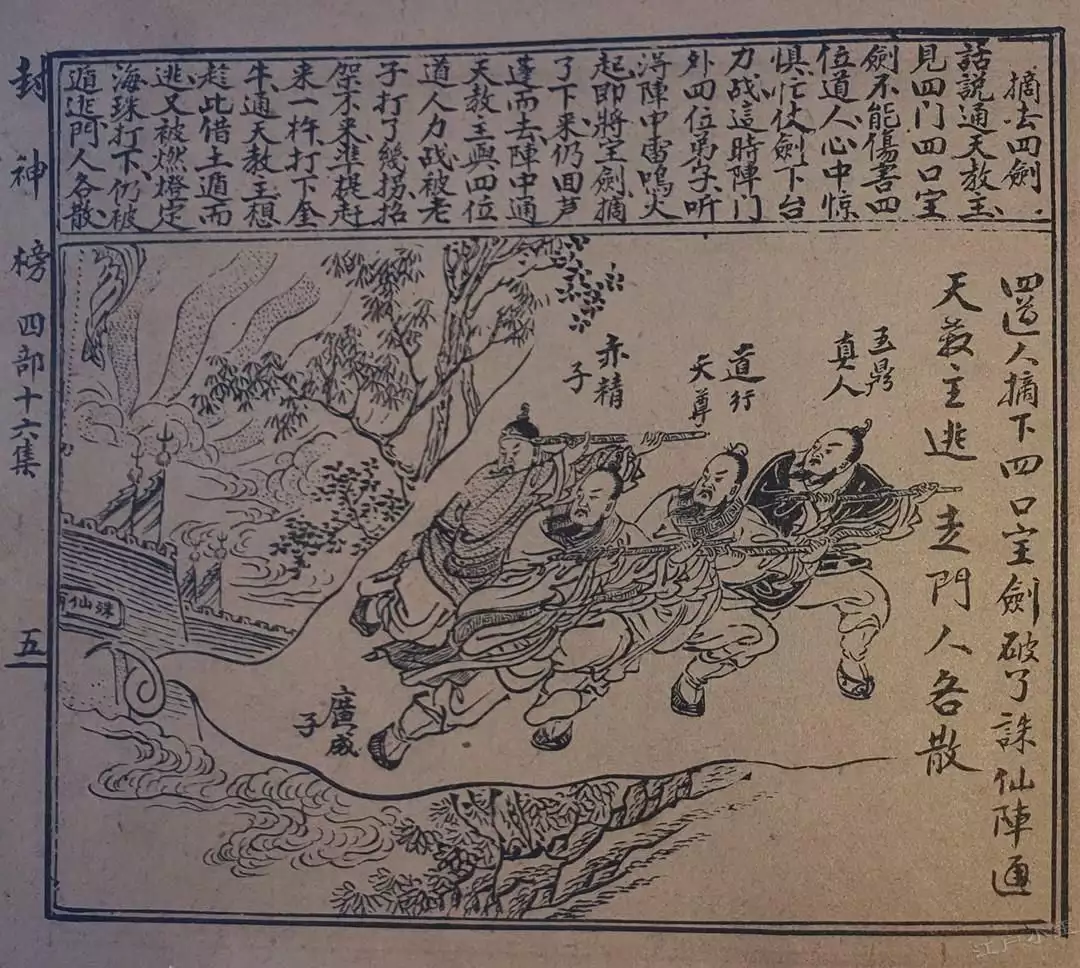 摘去四劍
話說通天教主
見四门四口宝
劍不能傷害四
位道人心中惊
惧忙仗劍下台
力战這時陣门
外四位弟子听
淂陣中雷鳴火
起即將宝劍摘
了下来仍回芦
蓬而去陣中通
天教主與四位
道人力战被老
子打了幾拐招
架不来準提赶
来一杵打下奎
牛通天教主想
趁此借土遁而
逃又被燃燈定
海珠打下仍被
遁逃門人各散
四道人摘下四口宝劍破了誅仙陣通
天教主逃走門人各散
玉鼎
真人
道行
天尊
赤精
子
廣成
子
誅仙
封神榜 四部十六集 五